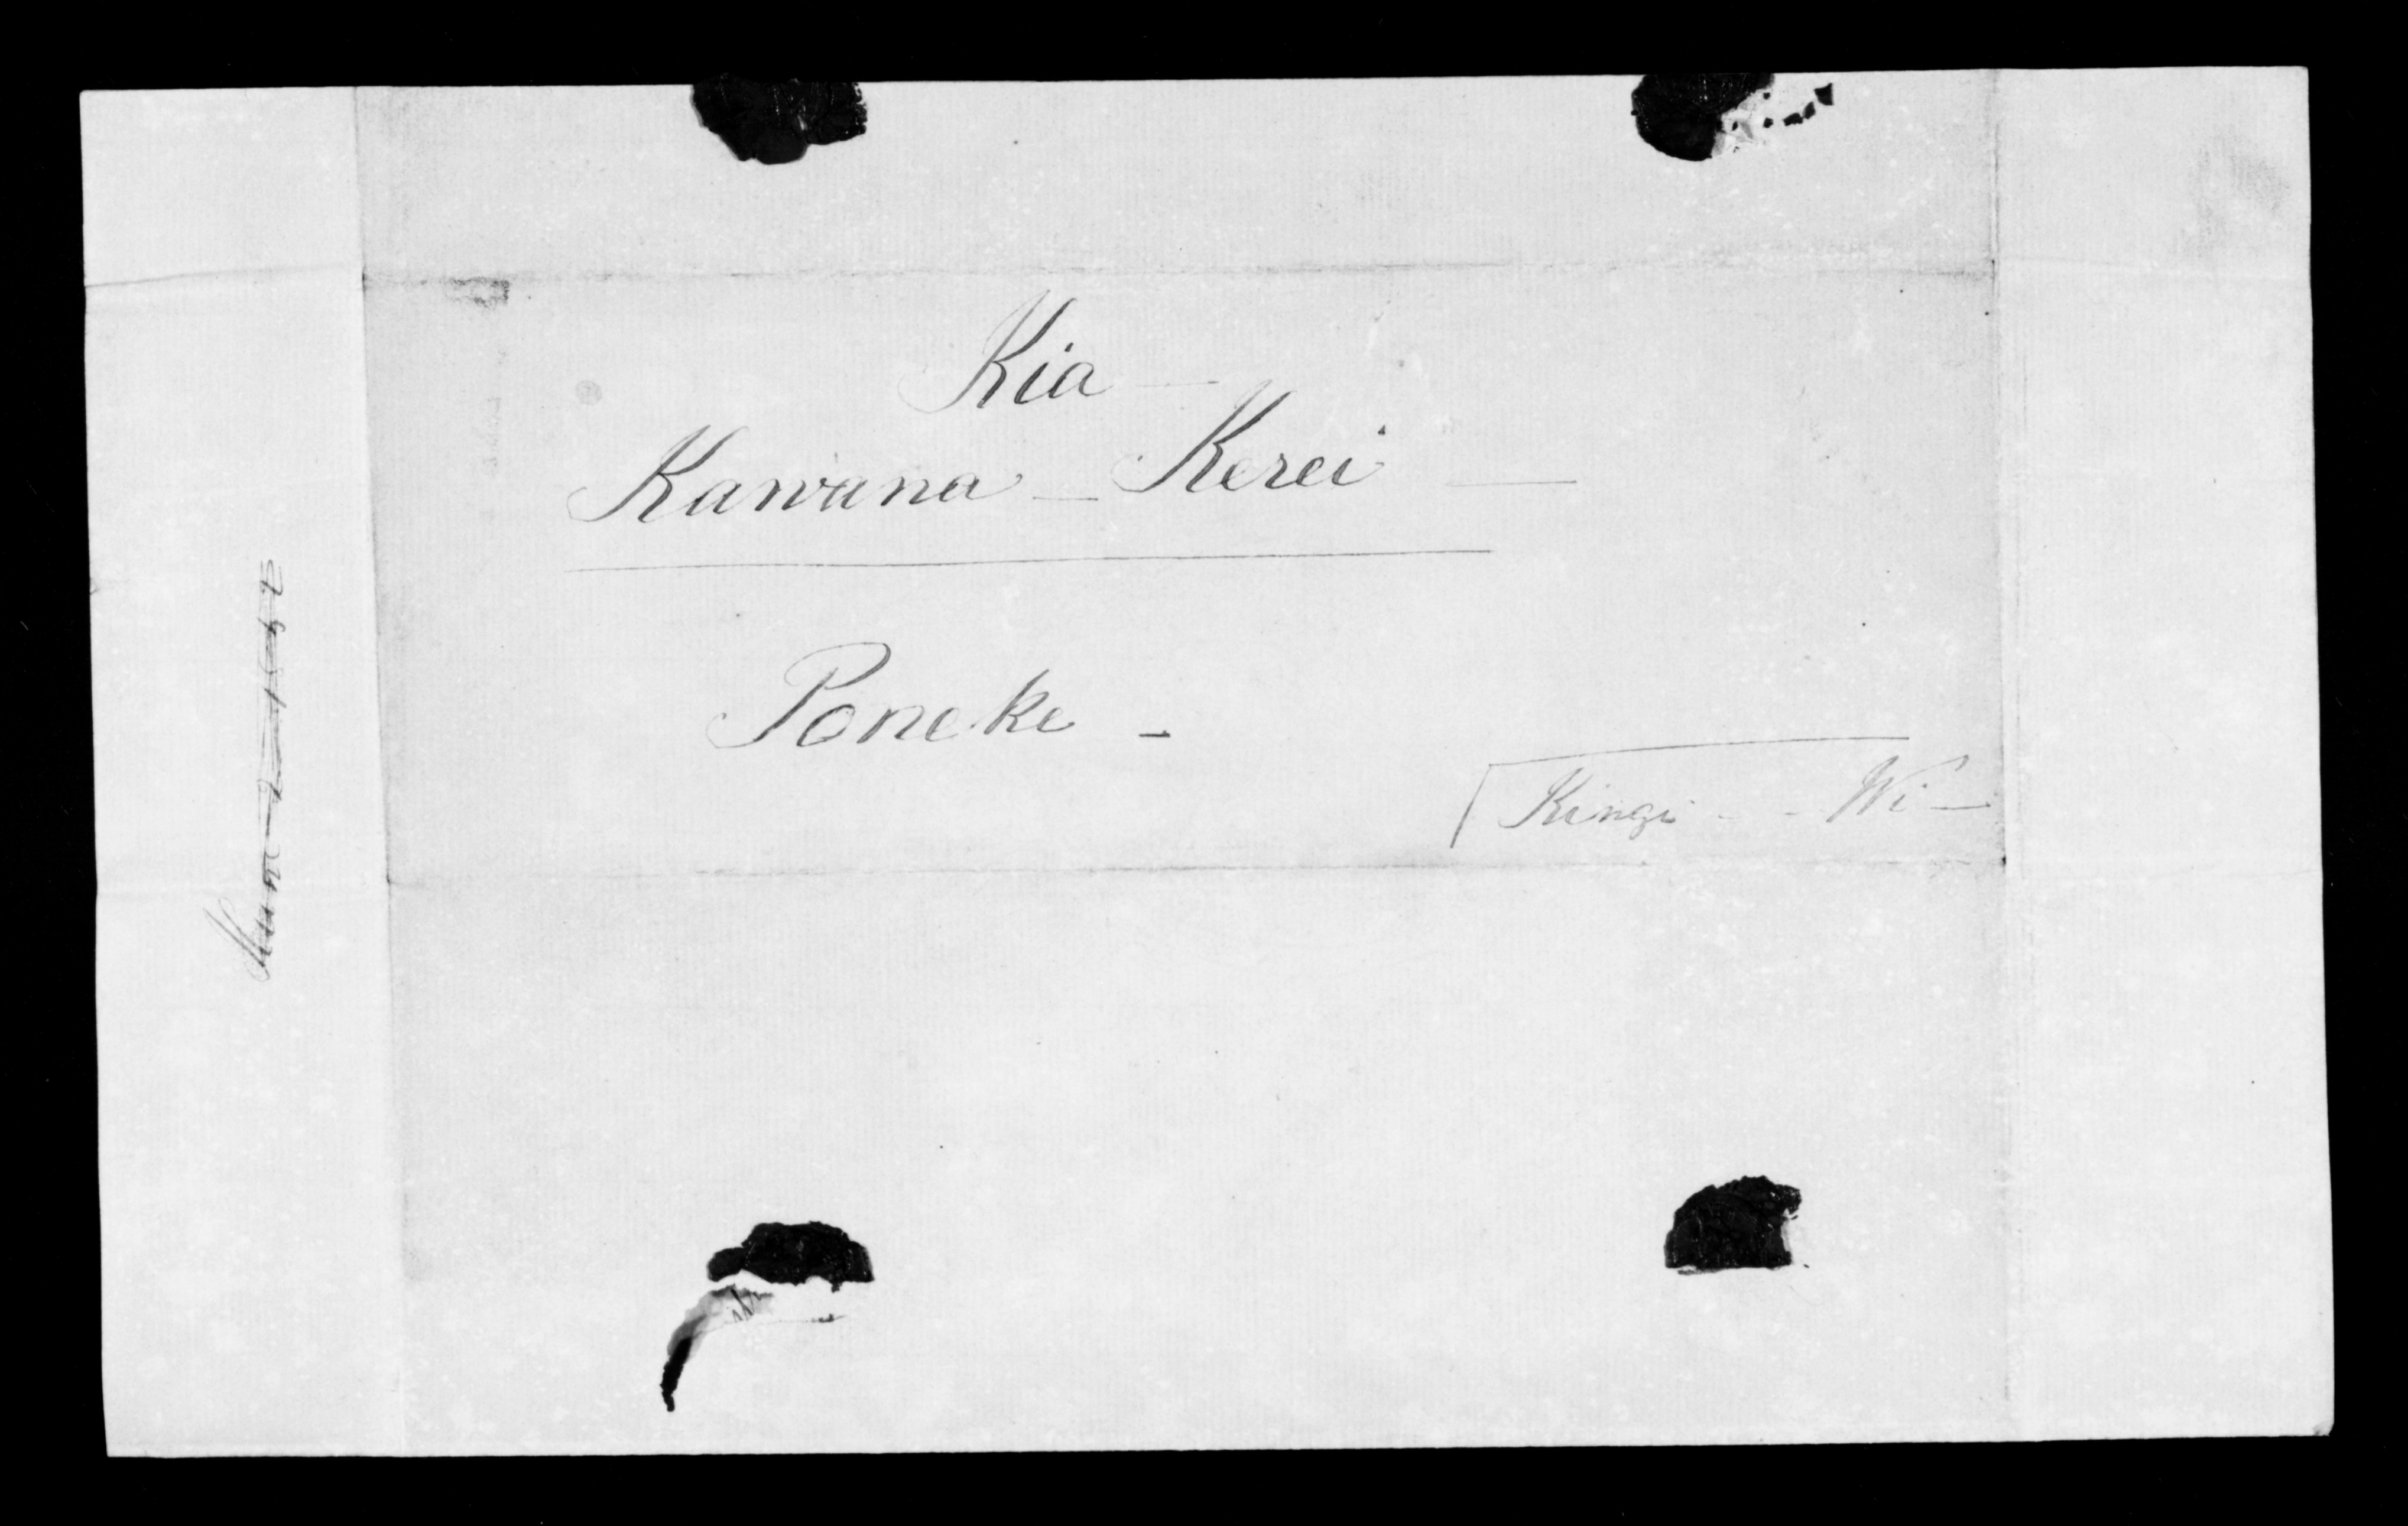 Kia —
Kawana — Kerei —
Poneke -
Kingi - - Wi —